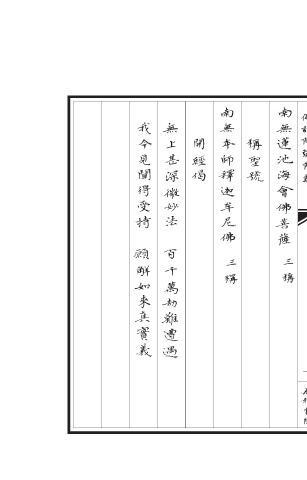 南無蓮池海會佛菩薩 三稱
稱聖號
南無本師釋迦牟尼佛 三稱
開經偈
無上甚深微妙法 百千萬劫難遭遇
我今見聞得受持 願解如來真實義